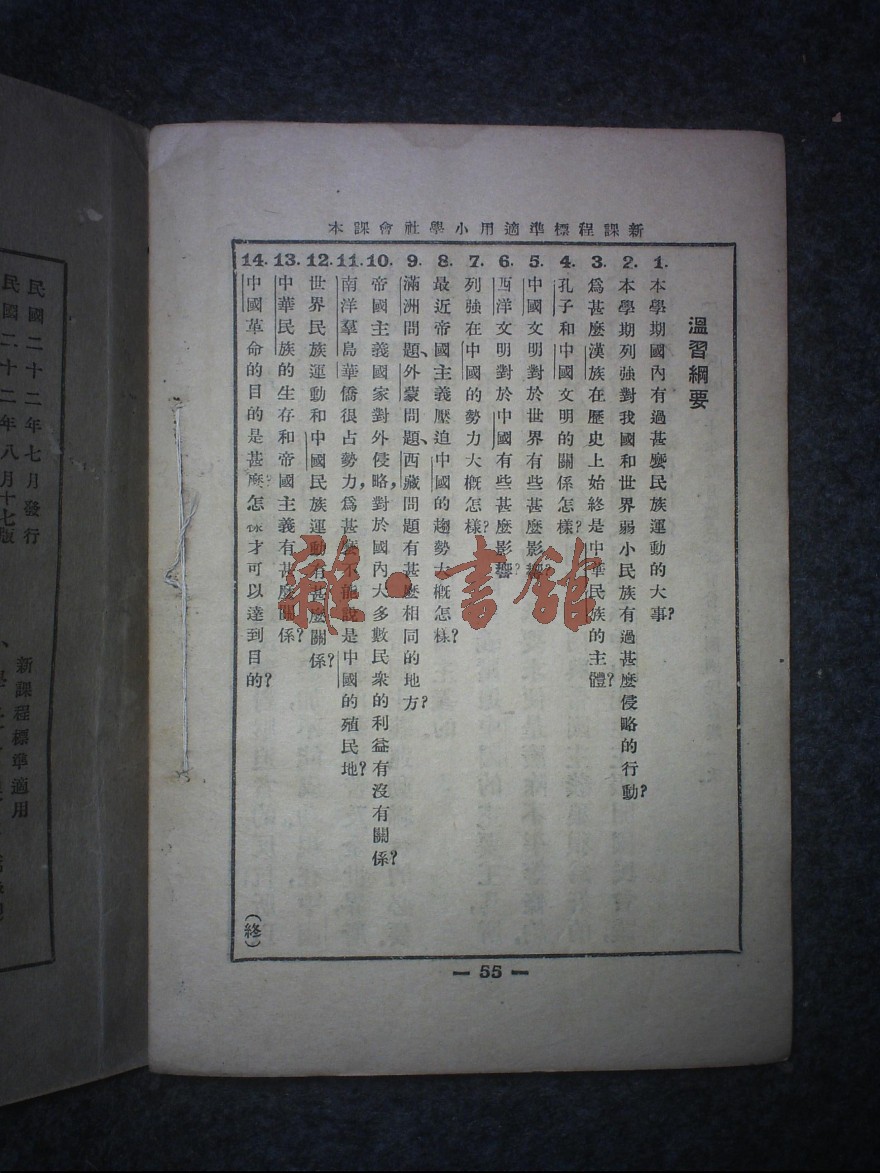 新課程標準適用小學社會課本
溫習綱要
1. 本學期國內有過甚麼民族運動的大事?
2. 本學期列強對我國和世界弱小民族有過甚麼侵略的行動?
3. 爲甚麼漢族在歷史上始終是中華民族的主體?
4. 孔子和中國文明的關係怎樣?
5. 中國文明對於世界有些甚麼影響?
6. 西洋文明對於中國有些甚麼影響?
7. 列強在中國的勢力大概怎樣?
8. 最近帝國主義壓迫中國的趨勢大概怎樣?
9. 滿洲問題、外蒙問題、西藏問題有甚麼相同的地方?
10. 帝國主義國家對外侵略,對於國內大多數民衆的利益有沒有關係?
11. 南洋羣島華僑很占勢力,爲甚麼不能說是中國的殖民地?
12. 世界民族運動和中國民族運動有甚麼關係?
13. 中華民族的生存和帝國主義有甚麼關係?
14. 中國革命的目的是甚麼?怎樣才可以達到目的?
(終)
— 55 —
雜·書館
民國二十二年七月發行
民國二十二年八月十七版
新課程標準適用